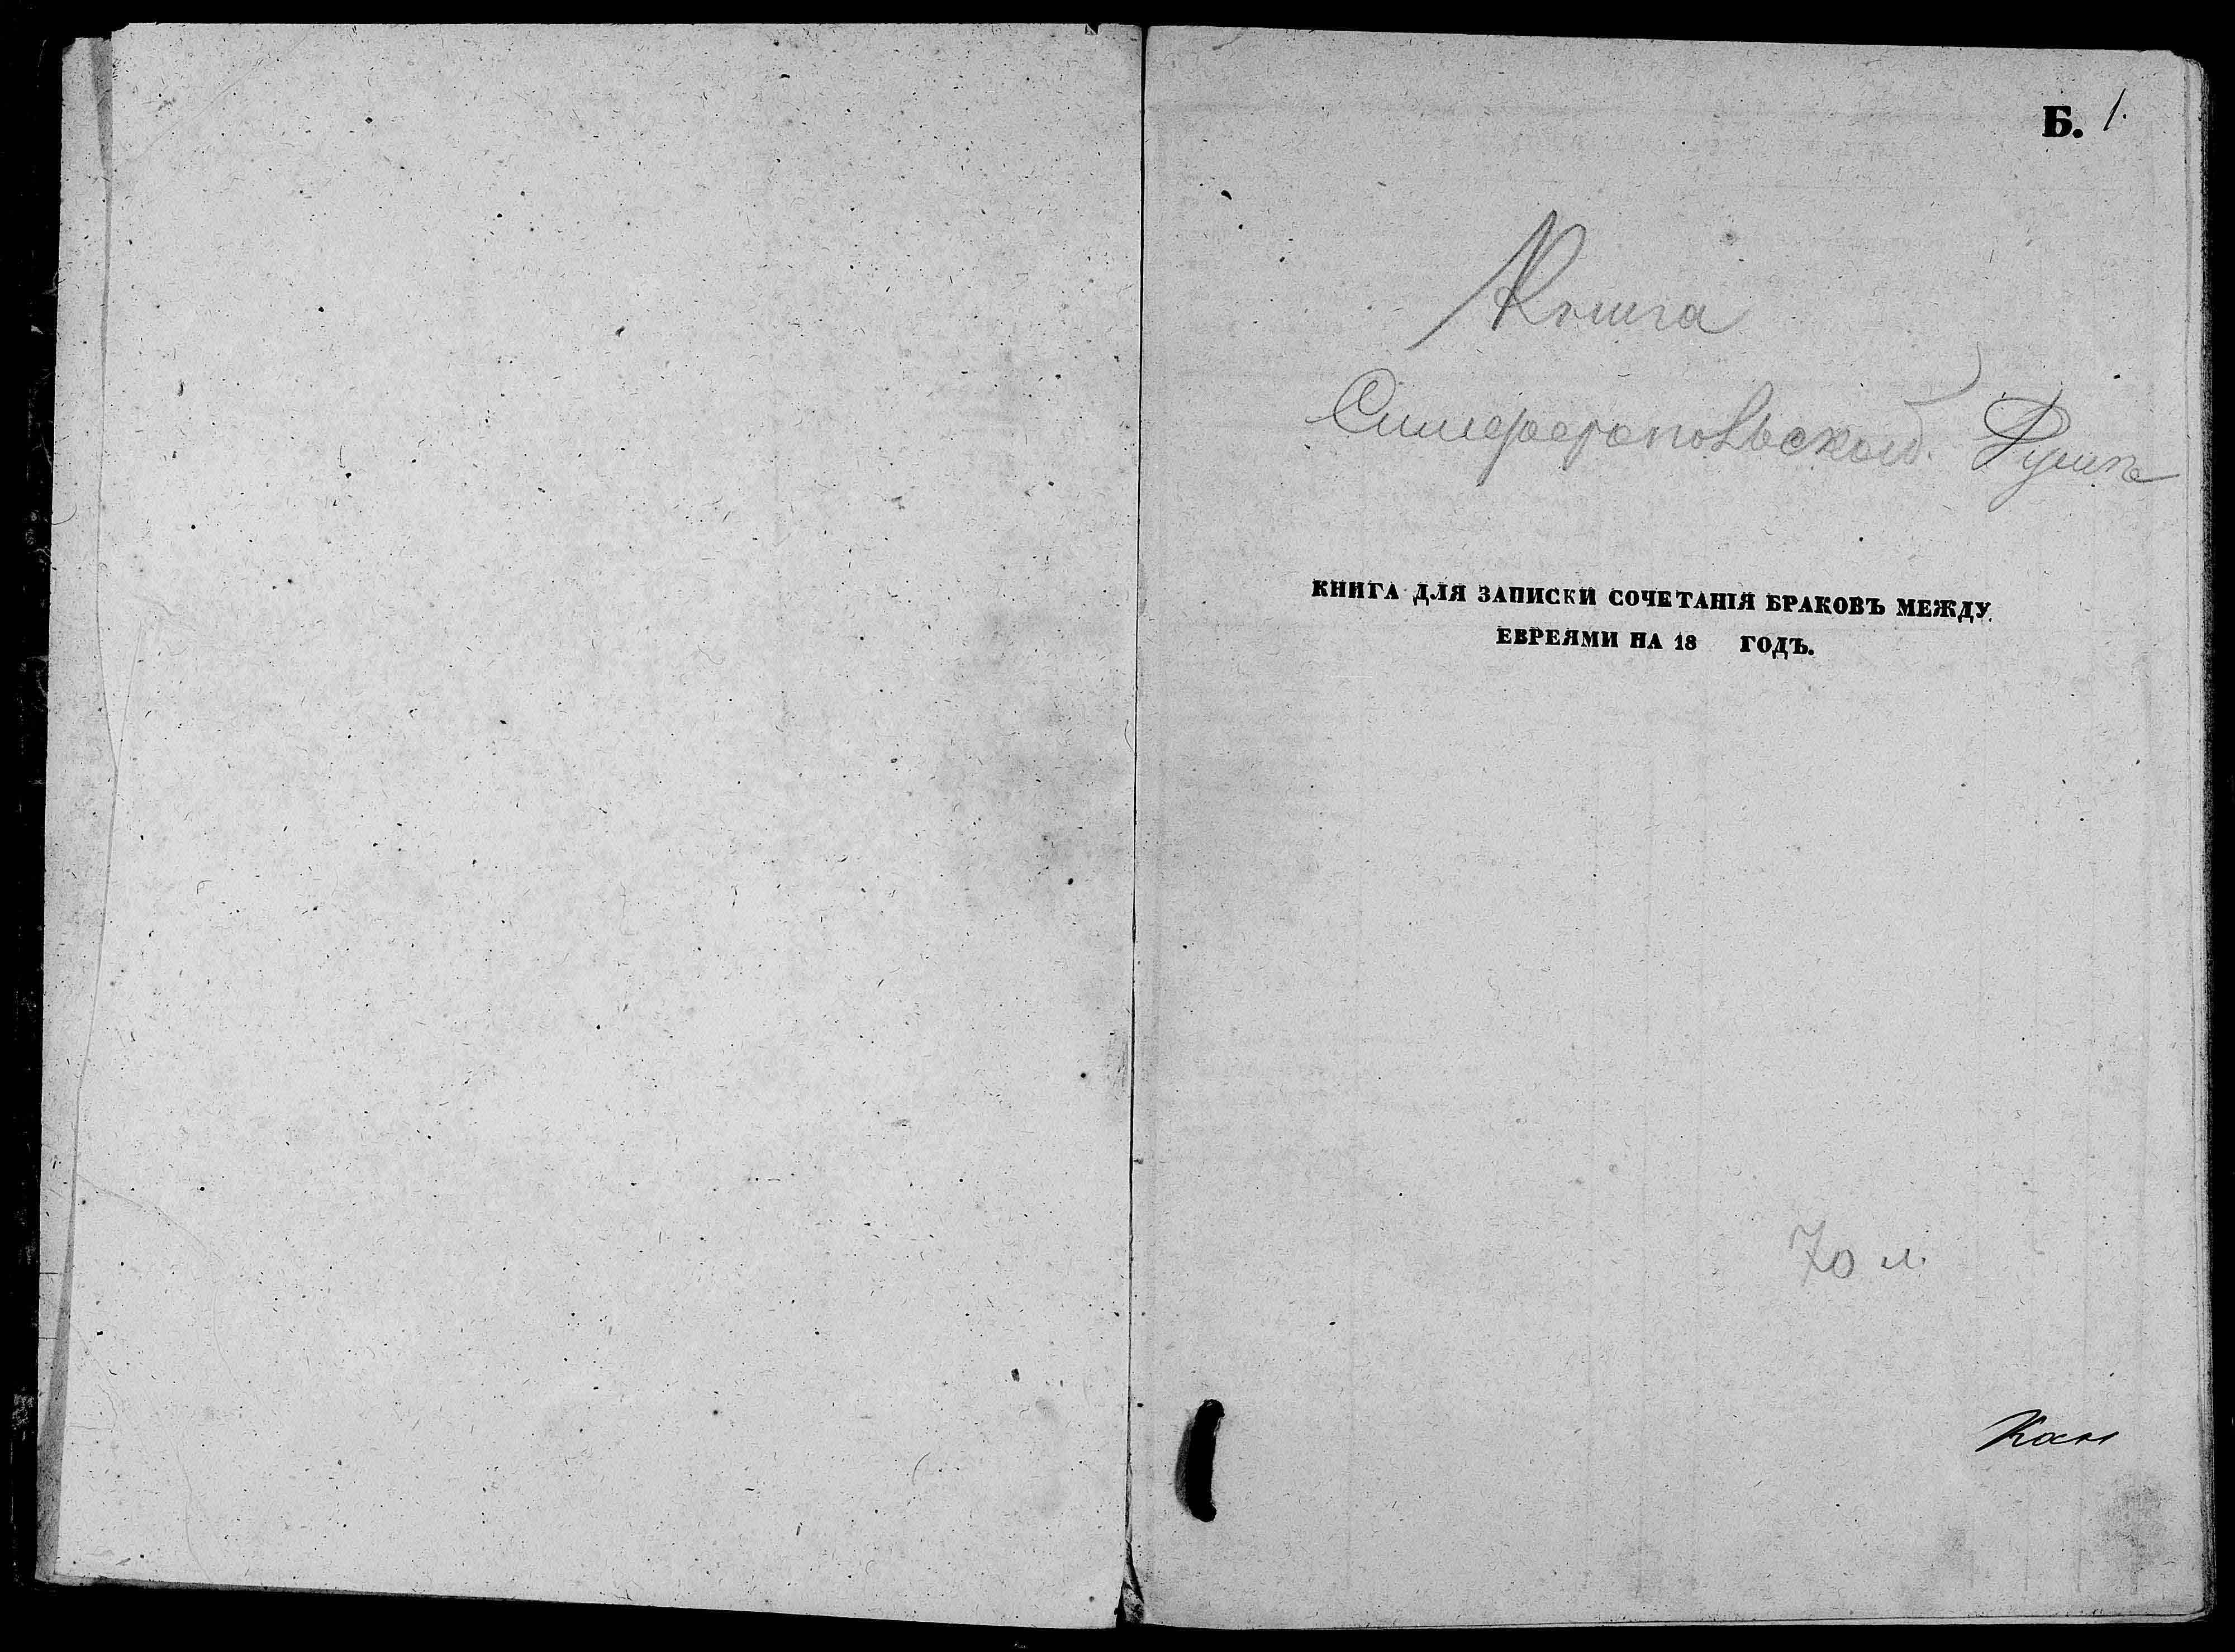 Б. 1.
Книга
Симферопольской
КНИГА ДЛЯ ЗАПИСКИ СОЧЕТАНІЯ БРАКОВЪ МЕЖДУ
ЕВРЕЯМИ НА 18 ГОДЪ.
70 л.